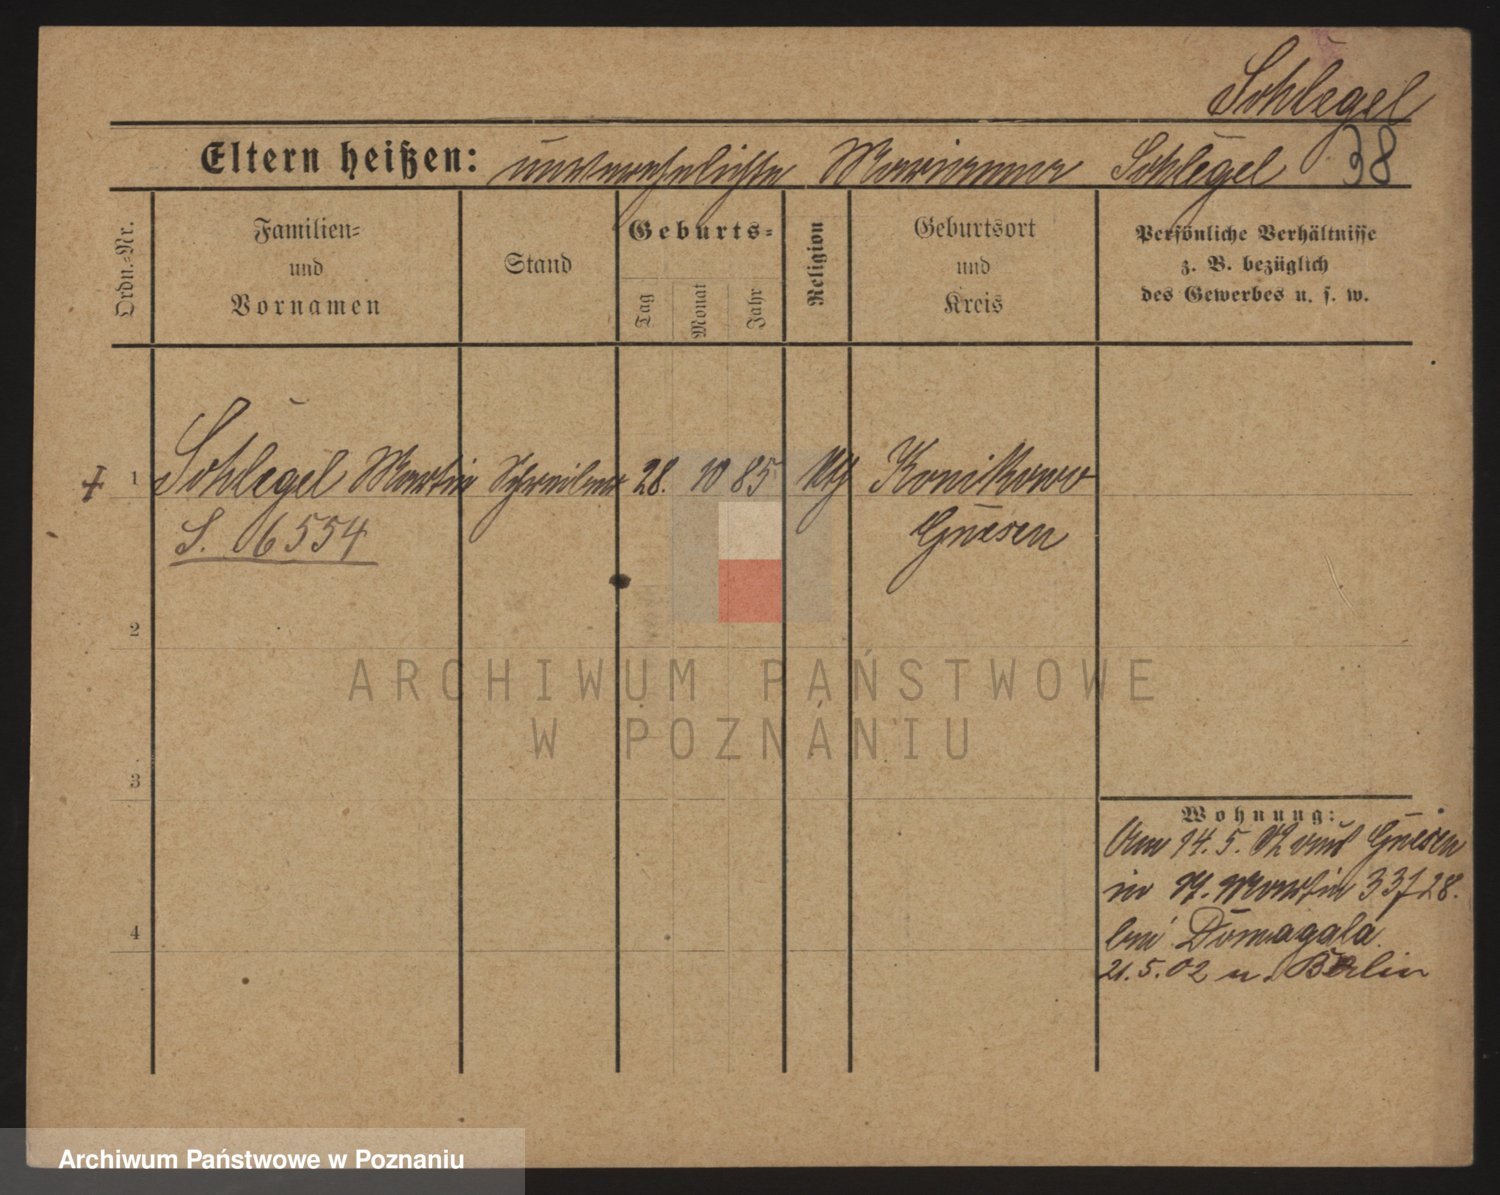 Schlegel
Eltern heißen: unverehelichte Marianna Schlegel 38
Ordn.-Nr.
Familien-
und
Vornamen
Stand
Geburts-
Tag
Monat
Jahr
Religion
Geburtsort
und
Kreis
Persönliche Verhältnisse
z. B. bezüglich
des Gewerbes u. s. w.
1 Schlegel Martin Schreiber 28. 10 85 kth Konikowo
S. 6554 Gnesen
2
ARCHIWUM PAŃSTWOWE
W POZNANIU
3
Wohnung:
Am 14. 5. 02 aus Gnesen
in St. Martin 33 28.
4
bei Domagala.
21.5.02 n. Berlin
Archiwum Państwowe w Poznaniu